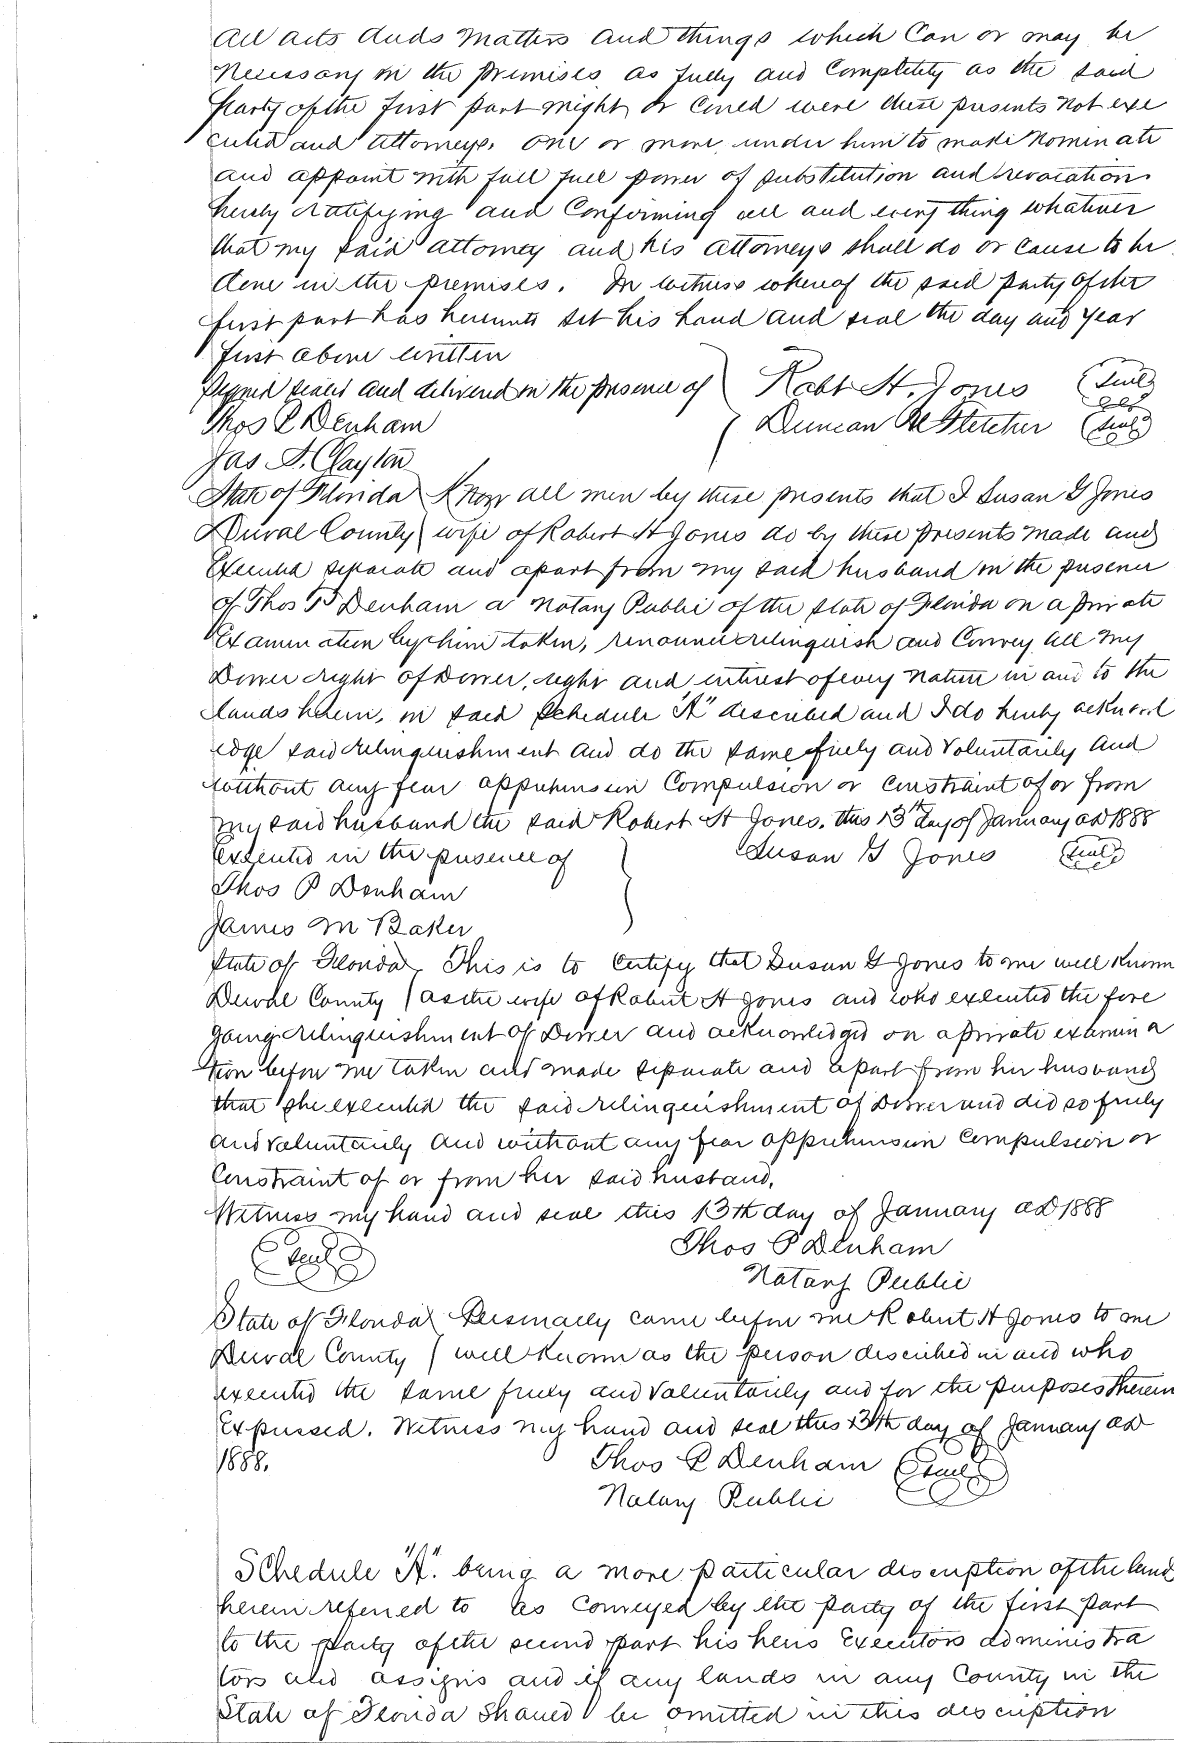 all acts deeds matters and things which can or may be
necessary in the premises as fully and completely as the said
party of the first part might or could were these presents not exe
cuted and attorneys, one or more under him to make nominate
and appoint with full full power of substitution and revocation
hereby ratifying and confirming all and every thing whatever
that my said attorney and his attorneys shall do or cause to be
done in the premises. In witness whereof the said party of the
first part has hereunto set his hand and seal the day and year
first above written
Signed sealed and delivered in the presence of } Robt H. Jones (Seal)
Thos P Denham } Duncan U Fletcher (Seal)
Jas A. Clayton
State of Florida } Know all men by these presents that I Susan G Jones
Duval County } wife of Robert H Jones do by these presents made and
Executed separate and apart from my said husband in the presence
of Thos P Denham a Notary Public of the State of Florida on a private
Examination by him taken, renounce relinquish and convey all my
Dower right of Dower, right and interest of every nature in and to the
lands herein, in said Schedule "A" described and I do hereby acknowl
edge said relinquishment and do the same freely and voluntarily and
without any fear apprehension compulsion or constraint of or from
my said husband the said Robert H Jones. this 13th day of January AD 1888
Executed in the presence of } Susan G Jones (Seal)
Thos P Denham
James M Baker
State of Florida } This is to certify that Susan G Jones to me well known
Duval County } as the wife of Robert H Jones and who executed the fore
going relinquishment of Dower and acknowledged on a private examina
tion before me taken and made separate and apart from her husband
that she executed the said relinquishment of Dower and did so freely
and voluntarily and without any fear apprehension compulsion or
constraint of or from her said husband.
Witness my hand and seal this 13th day of January AD 1888
(Seal) Thos P Denham
Notary Public
State of Florida } Personally came before me Robert H Jones to me
Duval County } well known as the person described in and who
executed the same freely and voluntarily and for the purposes therein
Expressed. Witness my hand and seal this 13th day of January AD
1888. Thos P Denham (Seal)
Notary Public
Schedule "A". being a more particular description of the land
herein referred to as conveyed by the party of the first part
to the party of the second part his heirs Executors administra
tors and assigns and if any lands in any County in the
State of Florida should be omitted in this description